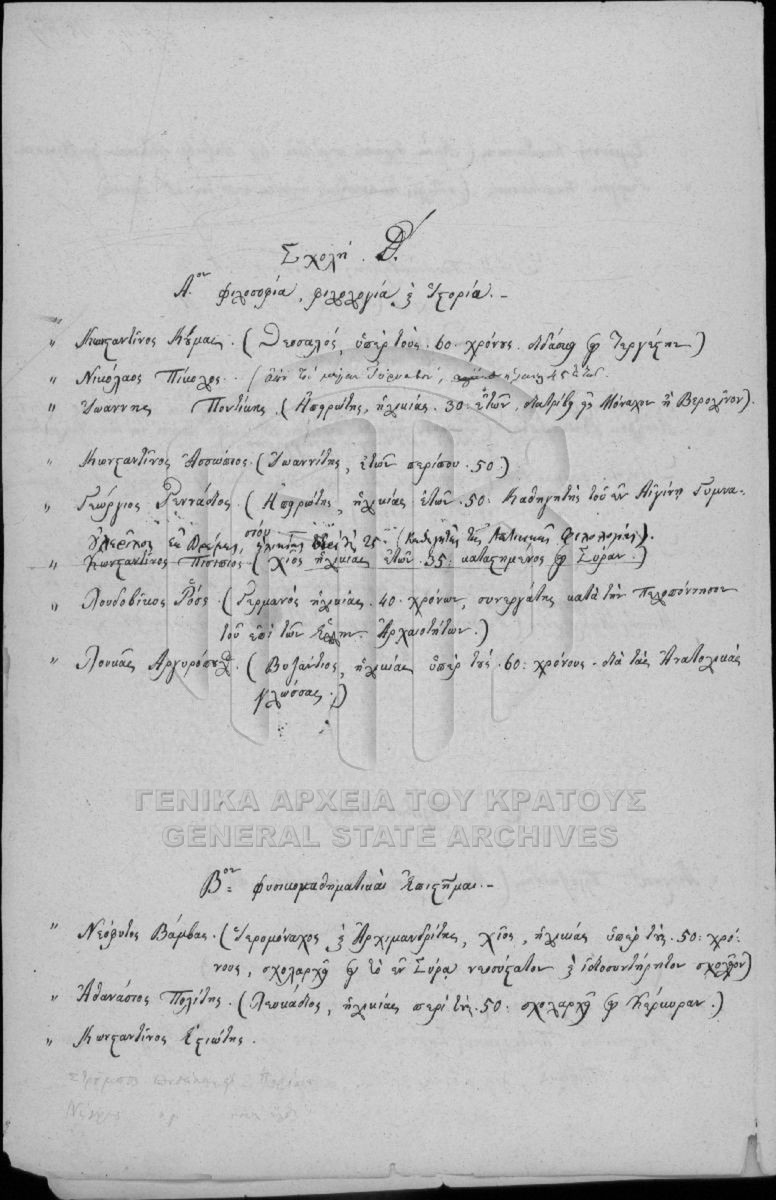 Σχολή. Δ.
Α.ον φιλοσοφία, φιλολογία, & Ἱστορία. –
" Κωνσταντῖνος Κούμας. (Θεσσαλός, ὑπὲρ τοὺς. 60. χρόνους. διδάσκει ἐν Τεργέστῃ)
" Νικόλαος Πίκολος. 45 ἐτῶν
" Ἰωάννης Ποντίκης. (Ἠπειρώτης, ἡλικίας. 30: ἐτῶν, διατρίβει εἰς Μόναχον ἢ Βερολῖνον).
" Κωνσταντῖνος Ἀσσώπιος. (Ἰωαννίτης, ἐτῶν περίπου. 50.)
" Γεώργιος Γεννάδιος. (Ἠπειρώτης, ἡλικίας ἐτῶν. 50. Καθηγητὴς τοῦ ἐν Αἰγίνῃ Γυμνα-
σίου
Οὐλερῖχος ἐκ Βρέμης, ἡλικίας 25 (Καθηγητὴς τῆς Λατινικῆς Φιλολογίας).
" Κωνσταντῖνος Πιτσιπιός. (Χῖος ἡλικίας ἐτῶν. 35: κατασταημένος ἐν Σύρᾳ.)
" Λουδοβῖκος Ῥός. (Γερμανὸς ἡλικίας. 40. χρόνων, συνεργάτης κατὰ τὴν Πελοπόννησον
τοῦ ἐπὶ τῶν Ἑλλην. Ἀρχαιοτήτων.)
" Λουκᾶς Ἀργυρόπουλος. (Βυζάντιος, ἡλικίας ὑπὲρ τοὺς. 60: χρόνους – διὰ τὰς Ἀνατολικὰς
γλώσσας.)
ΓΕΝΙΚΑ ΑΡΧΕΙΑ ΤΟΥ ΚΡΑΤΟΥΣ
GENERAL STATE ARCHIVES
Β.ον φυσικομαθηματικαὶ Ἐπιστῆμαι. –
" Νεόφυτος Βάμβας. (Ἱερομόναχος & Ἀρχιμανδρίτης, Χῖος, ἡλικίας ὑπὲρ τοὺς. 50: χρό-
νους, σχολαρχεῖ ἐν τῷ ἐν Σύρᾳ νεοσύστατον & ἰδιοσυντήρητον σχολεῖον)
" Ἀθανάσιος Πολίτης. (Λευκάδιος, ἡλικίας περὶ τοὺς. 50: σχολαρχεῖ ἐν Κέρκυραν.)
" Κωνσταντῖνος Ἐξιώτης.